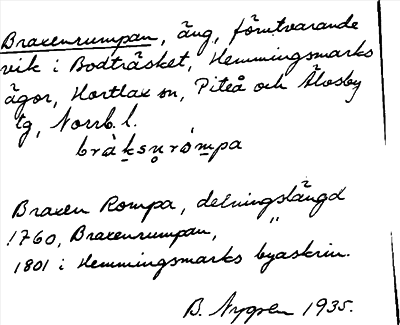 Braxenrumpan, äng, förutvarande
vik i Bodträsket, Hemmingsmarks
ägor, Hortlax sn, Piteå och Älvsby
tg, Norrb. l.
bràksn̥rómpa
Braxen Rompa, delningslängd
1760, Braxenrumpan, "
1801 i Hemmingsmarks byaskrin.
B. Nygren 1935.